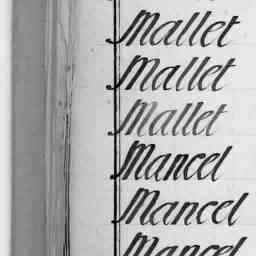 Mallet
Mallet
Mallet
Mancel
Mancel
Mancel